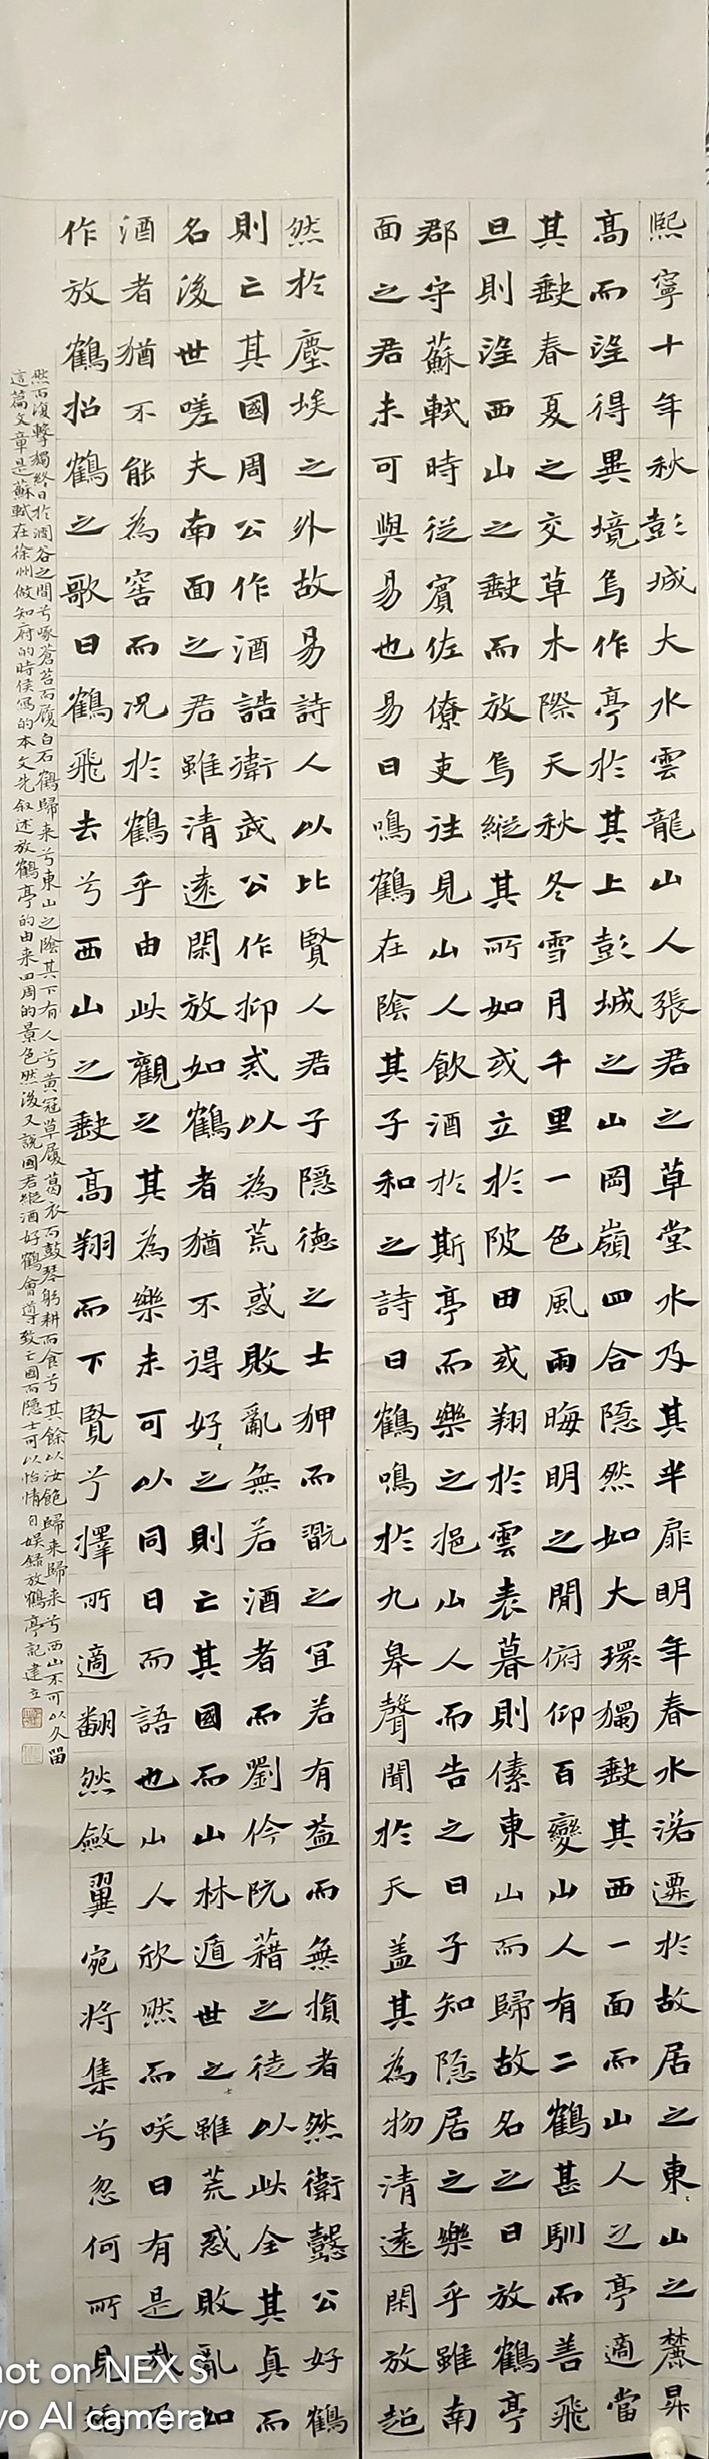 熙寧十年秋彭城大水雲龍山人張君之草堂水及其半扉明年春水落遷於故居之東山之麓昇
高而望得異境焉作亭於其上彭城之山岡嶺四合隱然如大環獨缺其西一面而山人之亭適當
其缺春夏之交草木際天秋冬雪月千里一色風雨晦明之間俯仰百變山人有二鶴甚馴而善飛
旦則望西山之缺而放焉縱其所如或立於陂田或翔於雲表暮則傃東山而歸故名之曰放鶴亭
郡守蘇軾時從賓佐僚吏往見山人飲酒於斯亭而樂之挹山人而告之曰子知隱居之樂乎雖南
面之君未可與易也易曰鳴鶴在陰其子和之詩曰鶴鳴於九皋聲聞於天蓋其為物清遠閑放超
然於塵埃之外故易詩人以比賢人君子隱德之士狎而翫之宜若有益而無損者然衛懿公好鶴
則亡其國周公作酒誥衛武公作抑戒以為荒惑敗亂無若酒者而劉伶阮藉之徒以此全其真而
名後世嗟夫南面之君雖清遠閑放如鶴者猶不得好之則亡其國而山林遁世之士雖荒惑敗亂如
酒者猶不能為害而況於鶴乎由此觀之其為樂未可以同日而語也山人欣然而咲曰有是哉乃
作放鶴招鶴之歌曰鶴飛去兮西山之缺高翔而下賢兮擇所適翻然斂翼宛將集兮忽何所見矯
然而復擊獨終日於澗谷之間兮啄蒼苔而履白石鶴歸來兮東山之陰其下有人兮黃冠草履葛衣而鼓琴躬耕而食兮其餘以汝飽歸來歸來兮西山不可以久留
這篇文章是蘇軾在徐州做知府的時侯寫的本文先叙述放鶴亭的由来四周的景色然後又說國君縱酒好鶴會導致亡國而隱士可以怡情自娛錄放鶴亭記建立
hot on NEX S
vo AI camera